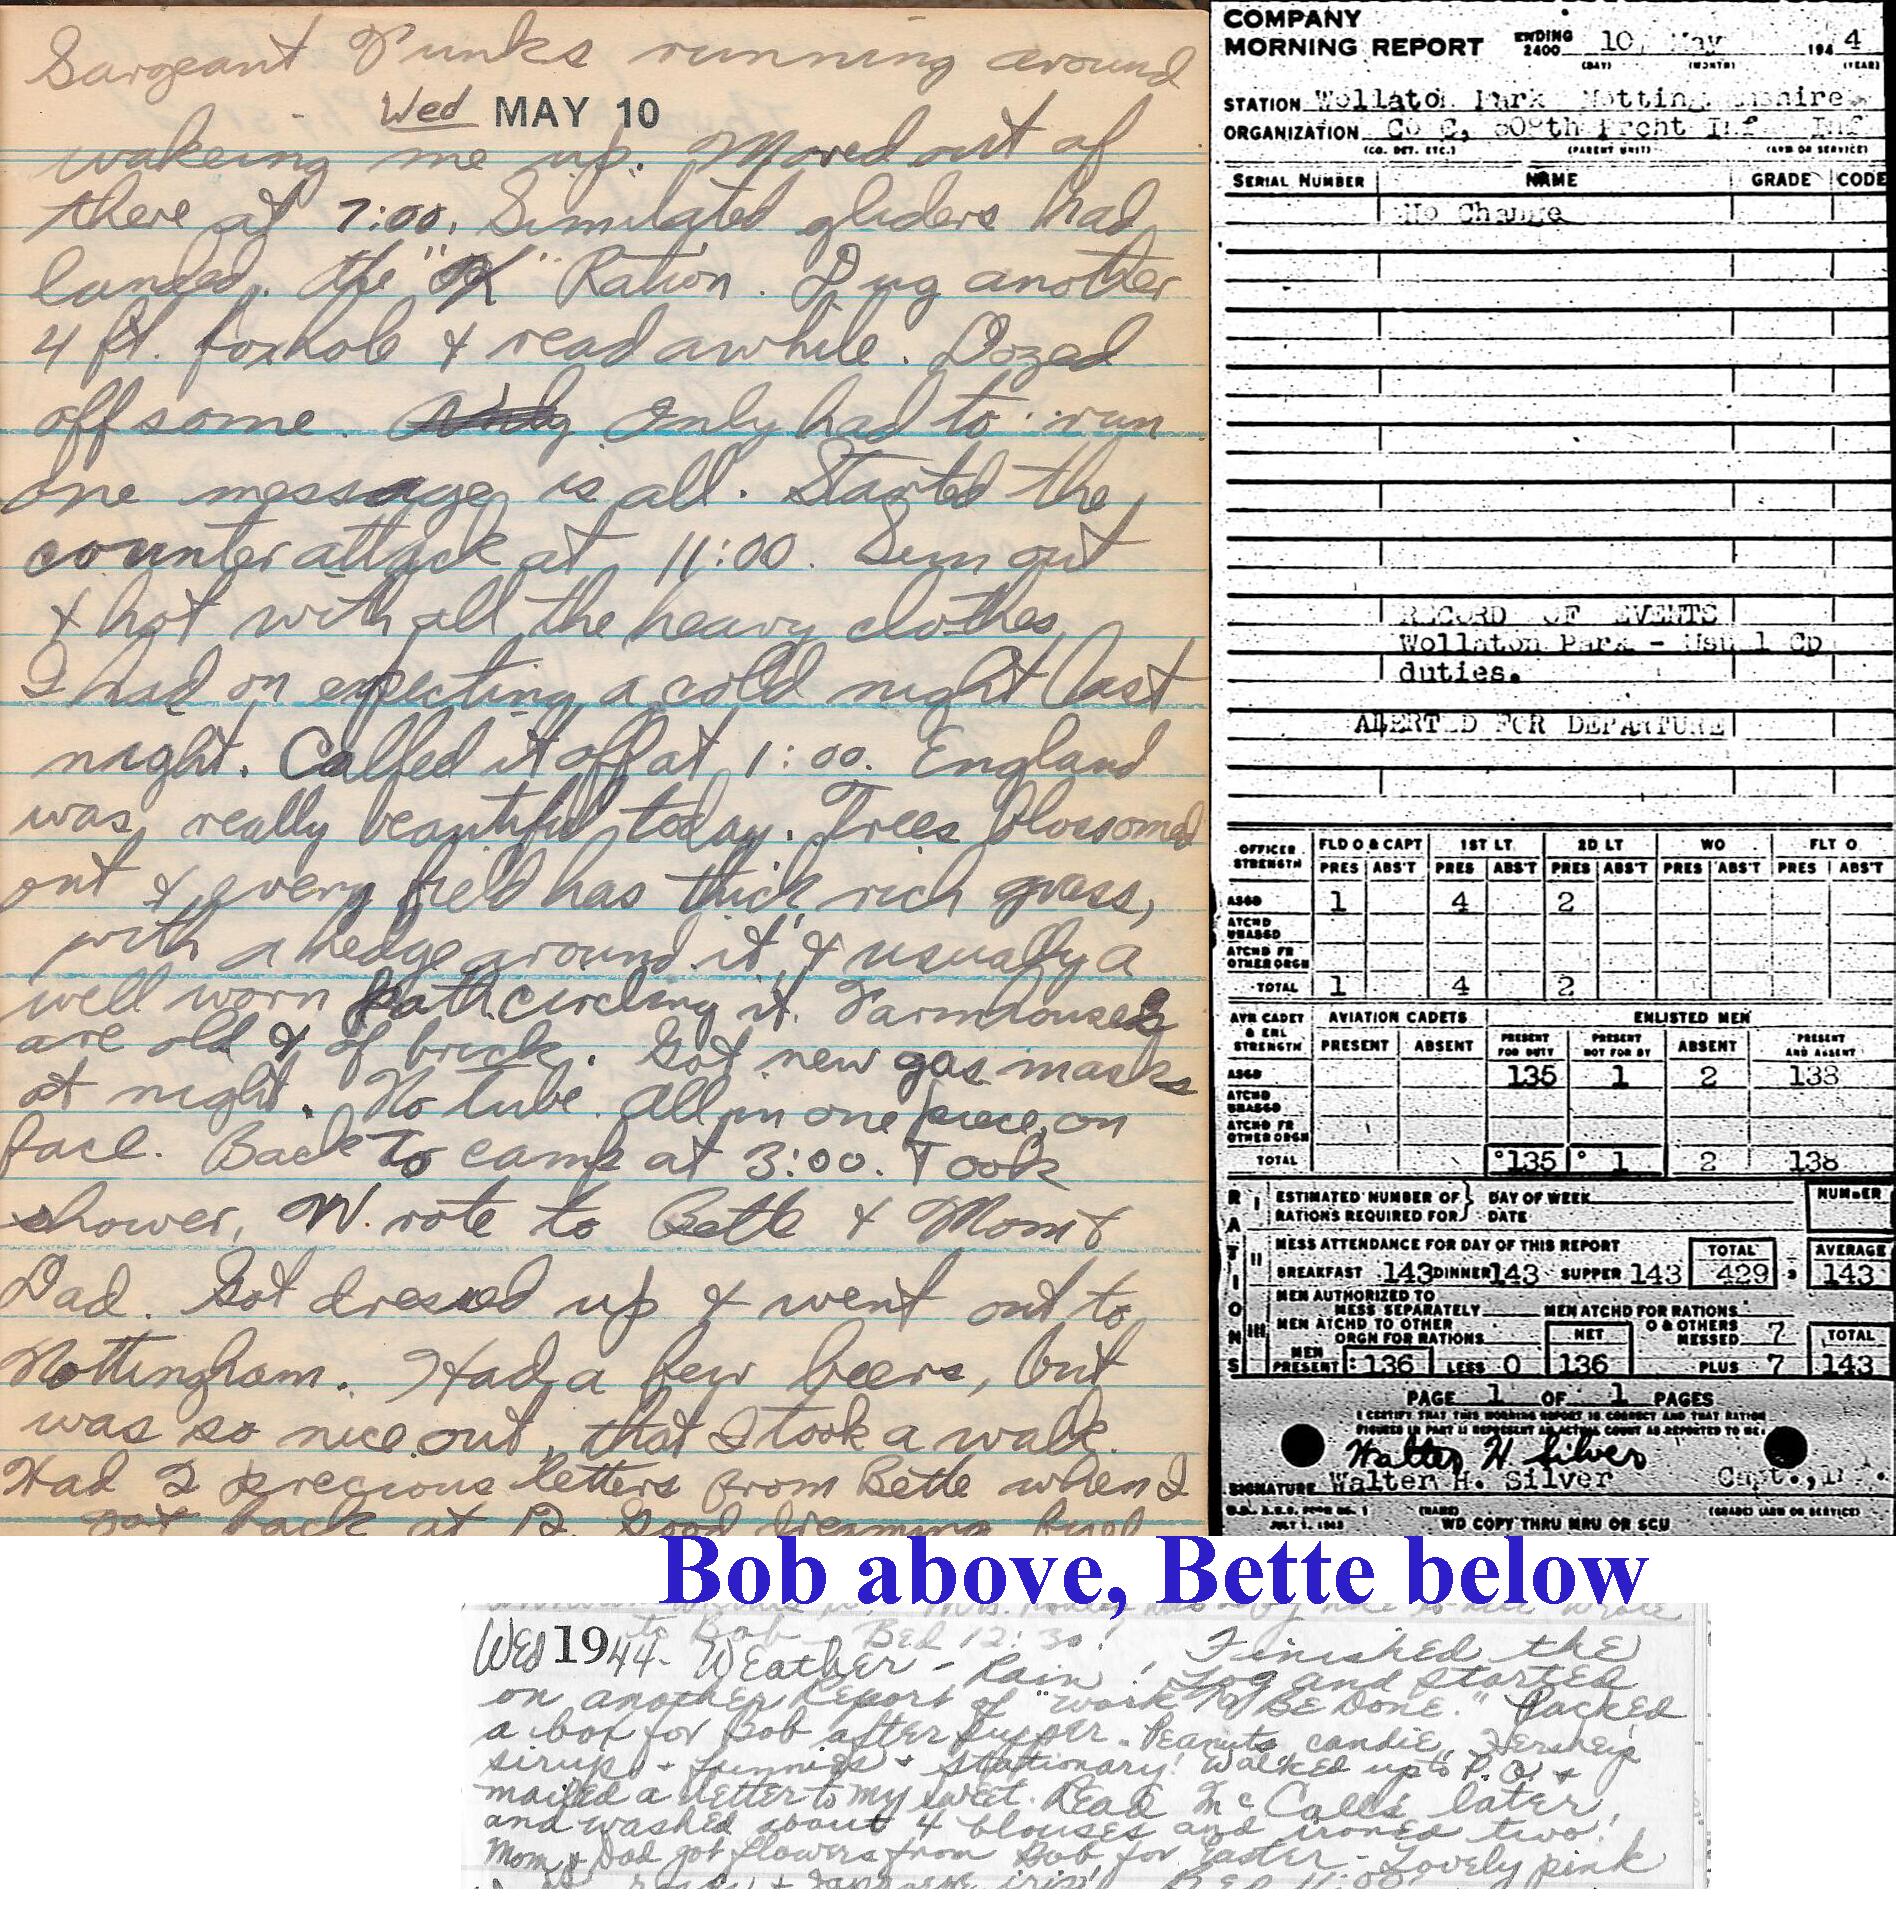 Sargeant Funks running around
Wed MAY 10
wakeing me up. Moved out of
there at 7:00. Simulated gliders had
landed. Ate "K" Ration. Dug another
4 ft. foxhole & read awhile. Dozed
off some. Only had to run
one message is all. Started the
counter attack at 11:00. Sun out
& hot with all the heavy clothes
I had on expecting a cold night last
night. Called it off at 1:00. England
was really beautiful today. Trees blossomed
out & every field has thick rich grass,
with a hedge around it, & usually a
well worn path circling it. Farmhouses
are old & of brick. Got new gas masks
at night. No tube. All in one piece, on
face. Back to camp at 3:00. Took
shower, Wrote to Bette & Mom &
Dad. Got dressed up & went out to
Nottingham. Had a few beers, but
was so nice out, that I took a walk.
Had 2 precious letters from Bette when I
got back at 12. Good dreaming
COMPANY
MORNING REPORT ENDING 2400 10 May 194 4
(DAY) (MONTH) (YEAR)
STATION Wollaton Park Nottinghamshire
ORGANIZATION Co C, 508th Prcht Inf Inf
(CO. DET. ETC.) (PARENT UNIT) (ARM OR SERVICE)
SERIAL NUMBER NAME GRADE CODE
No Change
RECORD OF EVENTS
Wollaton Park - Usual Cp
duties.
ALERTED FOR DEPARTURE
OFFICER STRENGTH FLD O & CAPT 1ST LT 2D LT WO FLT O
PRES ABS'T PRES ABS'T PRES ABS'T PRES ABS'T PRES ABS'T
ASGD 1 4 2
ATCHD UNASGD
ATCHD FR OTHER ORGN
TOTAL 1 4 2
AVN CADET & ENL STRENGTH AVIATION CADETS ENLISTED MEN
PRESENT ABSENT PRESENT FOR DUTY PRESENT NOT FOR DY ABSENT PRESENT AND ABSENT
ASGD 135 1 2 138
ATCHD UNASGD
ATCHD FR OTHER ORGN
TOTAL 135 1 2 138
RATIONS
I ESTIMATED NUMBER OF RATIONS REQUIRED FOR DAY OF WEEK DATE NUMBER
II MESS ATTENDANCE FOR DAY OF THIS REPORT TOTAL AVERAGE
BREAKFAST 143 DINNER 143 SUPPER 143 429 143
III MEN AUTHORIZED TO MESS SEPARATELY MEN ATCHD FOR RATIONS
MEN ATCHD TO OTHER ORGN FOR RATIONS NET O & OTHERS MESSED 7 TOTAL
MEN PRESENT 136 LESS 0 136 PLUS 7 143
PAGE 1 OF 1 PAGES
I CERTIFY THAT THIS MORNING REPORT IS CORRECT AND THAT RATION
FIGURES IN PART III REPRESENT AN ACTUAL COUNT AS REPORTED TO ME.
Walter H Silver
SIGNATURE Walter H. Silver Capt.,
(NAME) (GRADE) (ARM OR SERVICE)
JULY 1, 1943 WD COPY THRU MRU OR SCU
Bob above, Bette below
to Bob - Bed 12:30!
Wed 1944 - Weather - Rain! Finished the
Log and started
on another Report of "work to be done." Packed
a box for Bob after supper - Peanuts, candie, Hershey's
sirup, - funnies & stationary! Walked up to P.O. &
mailed a letter to my sweet. Read McCalls later,
and washed about 4 blouses and ironed two!
Mom & Dad got flowers from Bob for Easter - Lovely pink
& Japanese iris! Bed 11:00